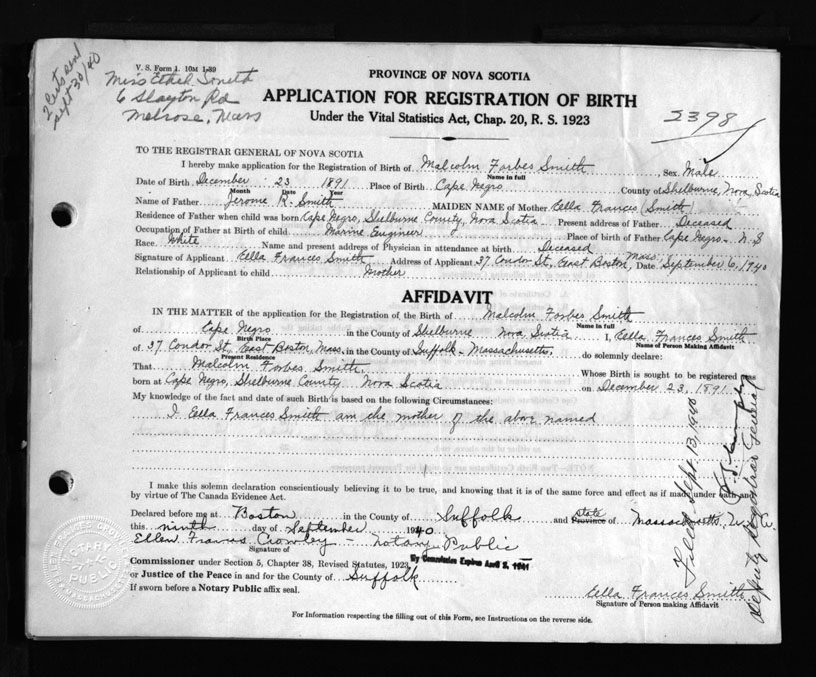 2 Certs send
Sept 30/40
V. S. Form 1. 10M 1-39
Miss Ethel Smith
6 Slayton Rd
Melrose, Mass
PROVINCE OF NOVA SCOTIA
APPLICATION FOR REGISTRATION OF BIRTH
Under the Vital Statistics Act, Chap. 20, R. S. 1923
2398
TO THE REGISTRAR GENERAL OF NOVA SCOTIA
I hereby make application for the Registration of Birth of Malcolm Forbes Smith, Sex Male
Name in full
Date of Birth, December 23 1891 Place of Birth Cape Negro County of Shelburne, Nova Scotia
Month Date Year
Name of Father Jerome R. Smith MAIDEN NAME of Mother Eella Frances (Smith)
Residence of Father when child was born Cape Negro, Shelburne County, Nova Scotia Present address of Father Deceased
Occupation of Father at Birth of child Marine Engineer Place of birth of Father Cape Negro - N. S
Race White Name and present address of Physician in attendance at birth Deceased
Signature of Applicant Eella Frances Smith Address of Applicant 37 Condor St, East Boston, Mass, Date September 6, 1940
Relationship of Applicant to child Mother
AFFIDAVIT
IN THE MATTER of the application for the Registration of the Birth of Malcolm Forbes Smith
Name in full
of Cape Negro in the County of Shelburne Nova Scotia I, Eella Frances Smith
Birth Place Name of Person Making Affidavit
of 37 Condor St, East Boston, Mass. in the County of Suffolk - Massachusetts, do solemnly declare:
Present Residence
That Malcolm Forbes Smith, Whose Birth is sought to be registered was
born at Cape Negro, Shelburne County Nova Scotia on December 23, 1891
My knowledge of the fact and date of such Birth is based on the following Circumstances:
I Eella Frances Smith am the mother of the above named
I make this solemn declaration conscientiously believing it to be true, and knowing that it is of the same force and effect as if made under oath and
by virtue of The Canada Evidence Act.
Declared before me at Boston in the County of Suffolk and State Province of Massachusetts,
this ninth day of September 1940
Ellen Frances Crowley - Notary Public
Signature of
My Commission Expires April 3, 1941
Commissioner under Section 5, Chapter 38, Revised Statutes, 1923
or Justice of the Peace in and for the County of Suffolk
If sworn before a Notary Public affix seal.
Eella Frances Smith
Signature of Person making Affidavit
For Information respecting the filling out of this Form, see Instructions on the reverse side.
Filed Sept. 13, 1940
Deputy Registrar General
NOTARY
PUBLIC